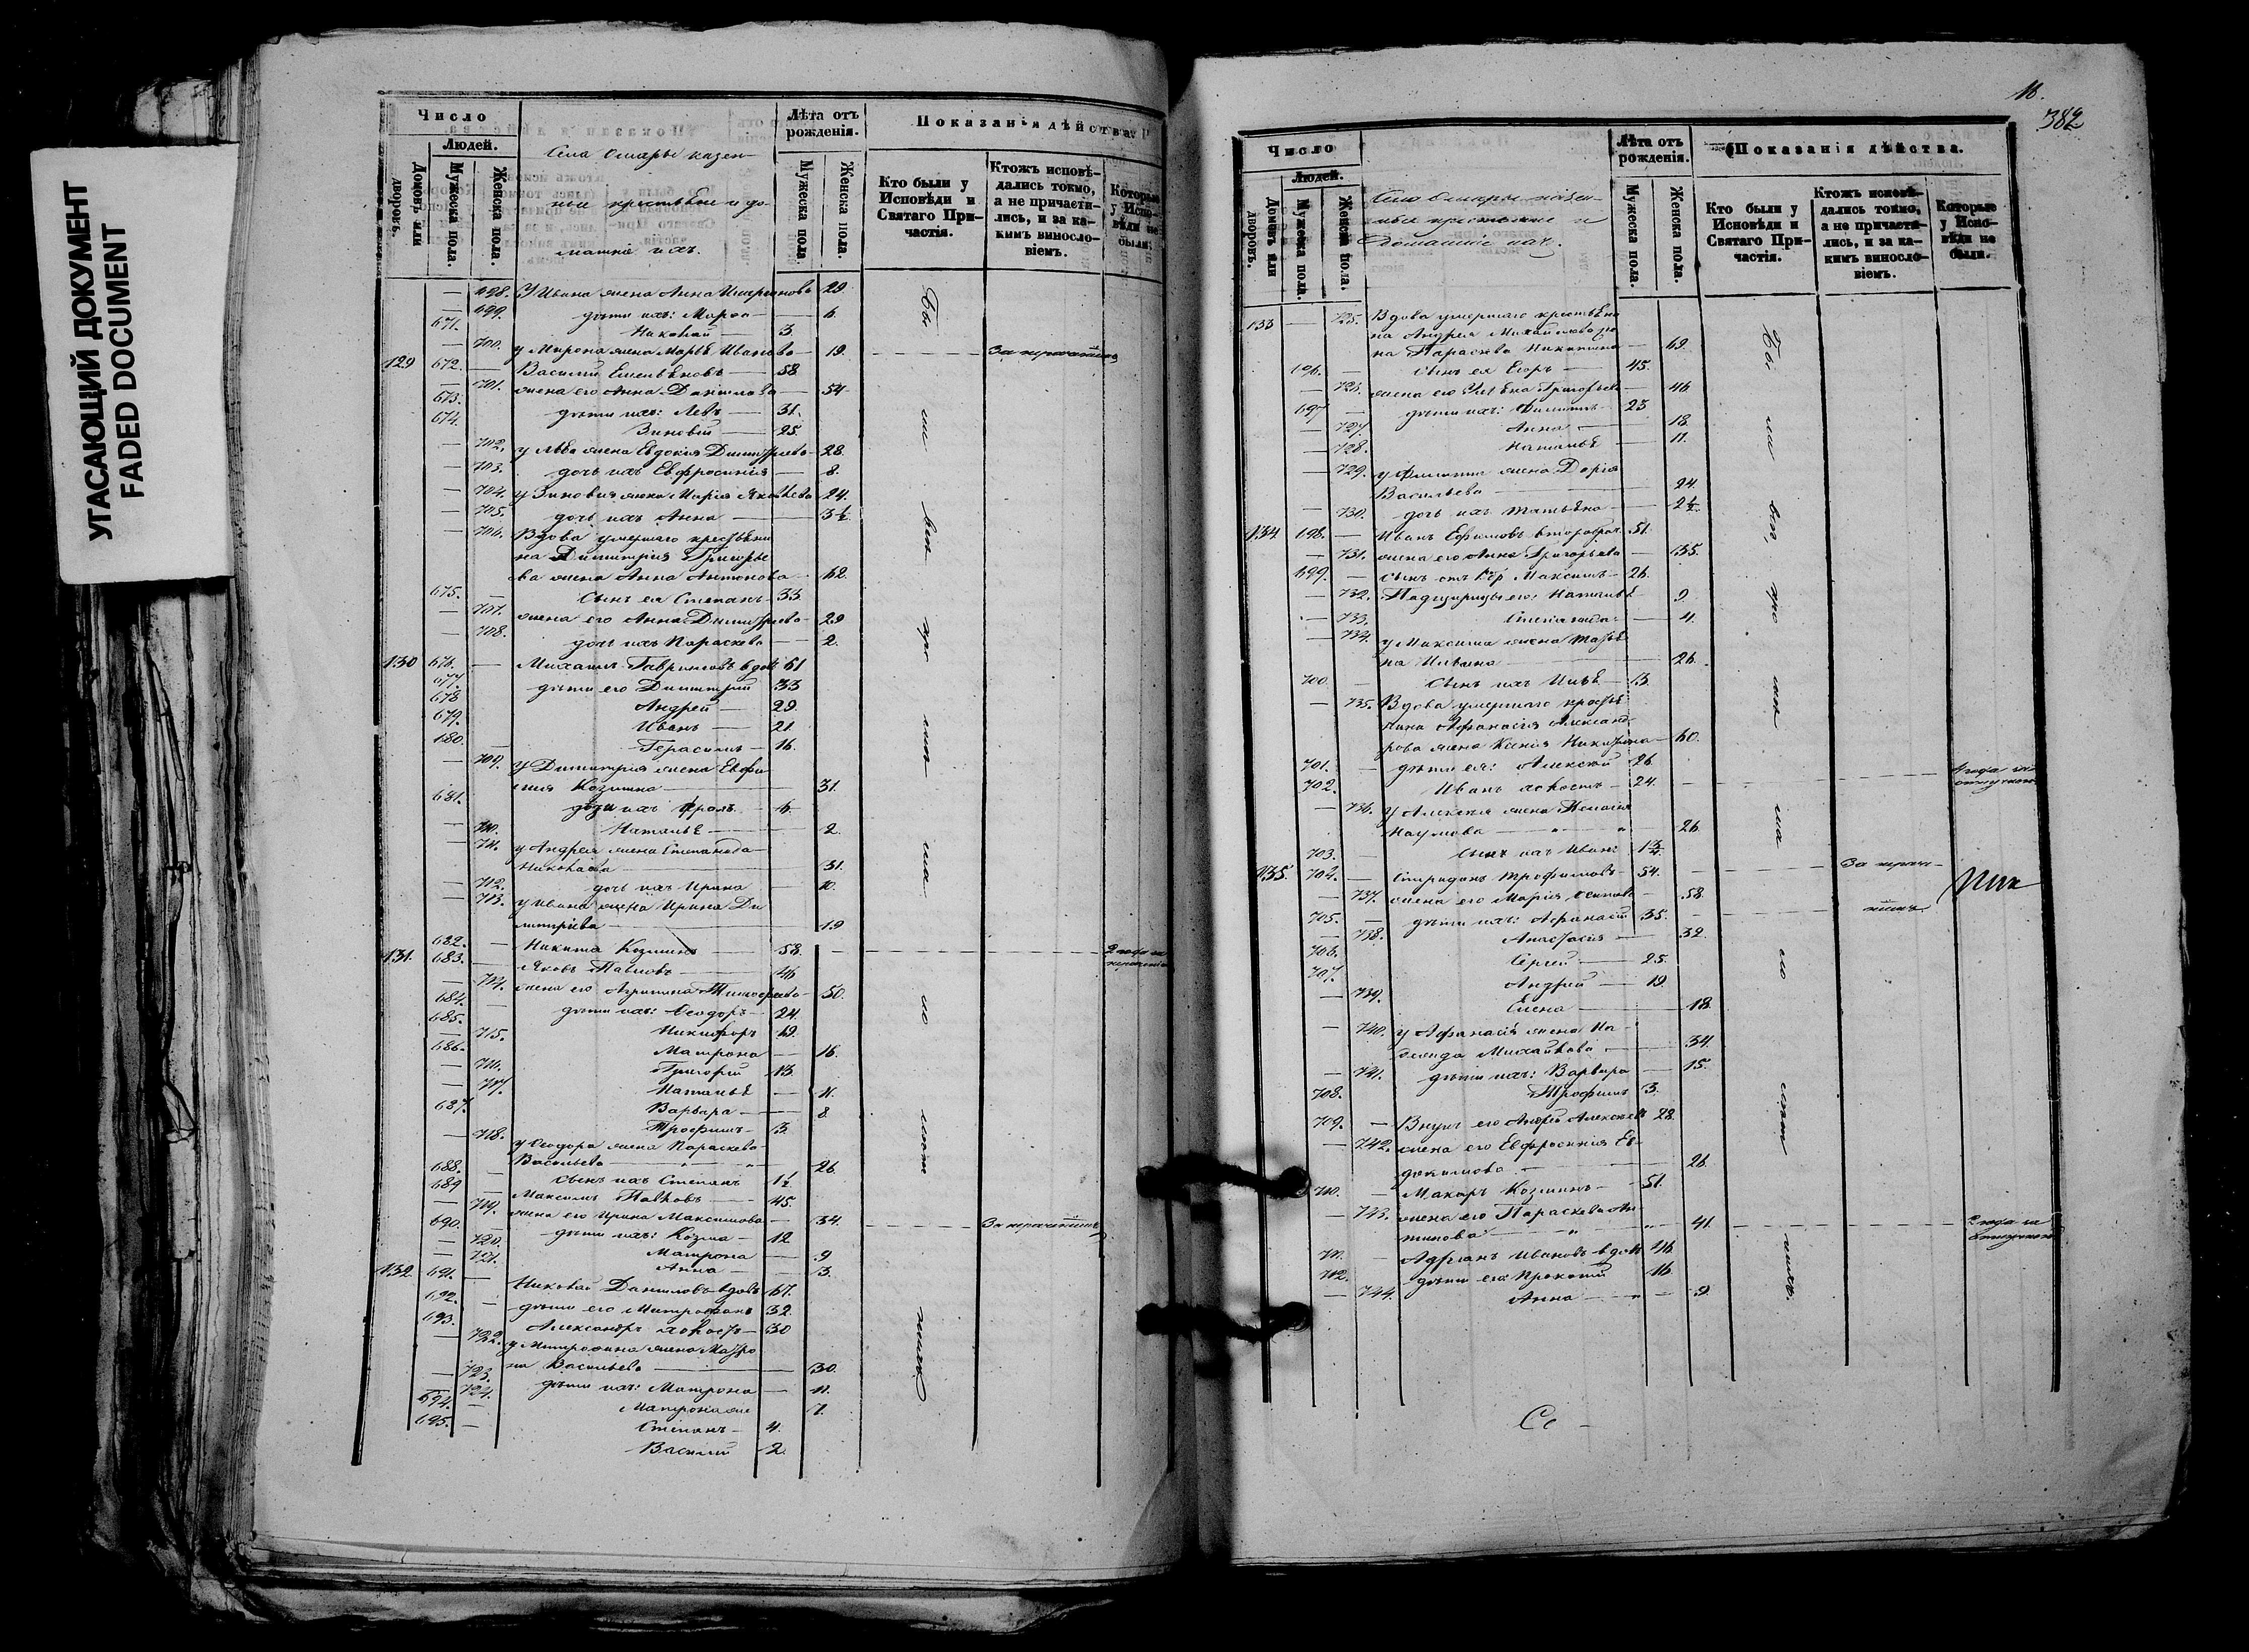 УГАСАЮЩИЙ ДОКУМЕНТ
FADED DOCUMENT
Число
Людей.
Домовъ или дворовъ.
Мужеска пола.
Женска пола.
Села Омары казен-
ные крестьяне и до-
машніе ихъ.
Лѣта отъ рожденія.
Мужеска пола.
Женска пола.
Показанія дѣйства.
Кто были у Исповѣди и Святаго При-частія.
Ктожъ исповѣ-дались токмо, а не причасти-лись, и за ка-кимъ винosло-віемъ.
Которые у Испо-вѣди не были.
— 698. У Ивана жена Анна 29
— 699. дѣти ихъ: 6.
671. Николай — 3.
— 700. у Мирона жена Марья Иванова — 19.
129 672. — Василій Емельяновъ — 58.
— 701. жена его Анна Данилова — 54
673. дѣти ихъ: Левъ — 31.
674. Зиновій — 25.
— 702. у Льва жена Евдокія Димитріева — 28.
— 703. дочь ихъ Евфросинія — 8.
— 704. у Зиновія жена Марія Яковлева 24.
— 705. дочь ихъ Анна — 3½
— 706. Вдова умершаго крестьяни
на Димитрія Григорье
ва жена Анна Антонова — 62.
675. — Сынъ ея Степанъ — 33
— 707. жена его Анна Димитріева — 29
— 708. дочь ихъ Параскева — 2.
130 676. — Михаилъ Гавриловъ вдов 61
677. дѣти его Димитрій 33
678 Андрей — 29.
679. Иванъ — 21
680. Герасимъ — 16.
— 709. у Димитрія жена Евфи
мія Козмина — 31.
681. дѣти ихъ Фролъ — 6.
— 710. Наталья — 2.
— 711. у Андрея жена Степанида
Николаева — 31.
— 712. дочь ихъ Ирина — 10.
— 713. у Ивана жена Ирина Ди
митріева — 19
682. — Никита Козминъ — 58.
131. 683. — Яковъ Павловъ — 46
— 714. жена его Агрипина Тимофеева — 50.
684. дѣти ихъ: Феодоръ — 24.
685. Никифоръ 19.
— 715. Матрона — 16.
686. Григорій 13.
— 716. Наталья — 11.
— 717. Варвара — 8
687. Трофимъ — 3.
— 718. у Феодора жена Параскева
Васильева — 26.
688. — сынъ ихъ Степанъ 1½
689 — Максимъ Павловъ — 45.
— 719. жена его Ирина Максимова — 34.
690. дѣти ихъ: Козма — 12
— 720. Матрона — 9
— 721. Анна — 3.
132 691. — Николай Даниловъ вдовъ 67.
692. — дѣти его Митрофанъ 32.
693. Александръ холостъ — 30
— 722. у Митрофана жена Матро
на Васильева — 30.
— 723. дѣти ихъ: Матрона — 11.
— 724. 7.
694. — Степанъ — 4.
695. — Василій — 2.
16.
382
Число
Людей.
Домовъ или дворовъ.
Мужеска пола.
Женска пола.
Село Омары казен-
ные крестьяне и
домашніе ихъ.
Лѣта отъ рожденія.
Мужеска пола.
Женска пола.
Показанія дѣйства.
Кто были у Исповѣди и Святаго При-частія.
Ктожъ исповѣ-дались токмо, а не причасти-лись, и за ка-кимъ виносло-віемъ.
Которые у Испо-вѣди не были.
133 — 725. Вдова умершаго крестьяни
на Андрея Михайлова
на Параскева Никитина — 69.
696. — сынъ ея Егоръ — 45.
— 726. жена его Ульяна Григорьева — 46.
697 — дѣти ихъ: Филиппъ — 23
— 727. Анна — 18.
— 728. Наталья — 11.
— 729. у Филиппа жена Дарія
Васильева — 24.
— 730. дочь ихъ Татьяна — 2½
134 698. — Иванъ Ефимовъ второбрач. 51.
— 731. жена его Анна Григорьева — 35.
699. — сынъ отъ Максимъ — 26.
— 732. Падчерицы его: Наталья 9.
— 733. Степанида — 4.
— 734. у Максима жена Татья
на Ильина — 26.
700. сынъ ихъ Илья — 3.
— 735. Вдова умершаго крестья
нина Афанасія Александ
рова жена Ксенія Никитина — 60.
701. — дѣти ея: Алексій 26
702. Иванъ холостъ — 24.
— 736. у Алексія жена Пелагія
Наумова — 26.
703. — сынъ ихъ Иванъ 1¾
135. 704. — Спиридонъ Трофимовъ — 54.
— 737. жена его Марія Осипова — 58.
705. — дѣти ихъ: Афанасій 35.
— 738. Анастасія — 32.
706. Сергей — 25.
707. Андрей — 19.
— 739. Елена — 18.
— 740. у Афанасія жена На
Михайлова — 34.
— 741. дѣти ихъ: Варвара — 15.
708. Трофимъ 3.
709. — Внукъ его Андрей Алексеевъ 28.
— 742. жена его Евфросинія Ев-
докимова — 26.
710. — Макаръ Козминъ — 51.
— 743. жена его Параскева Ан
типова — 41.
711. Адріанъ Ивановъ вдовъ 46.
712. дѣти его Прокопій 16.
— 744. Анна — 9.
Се -